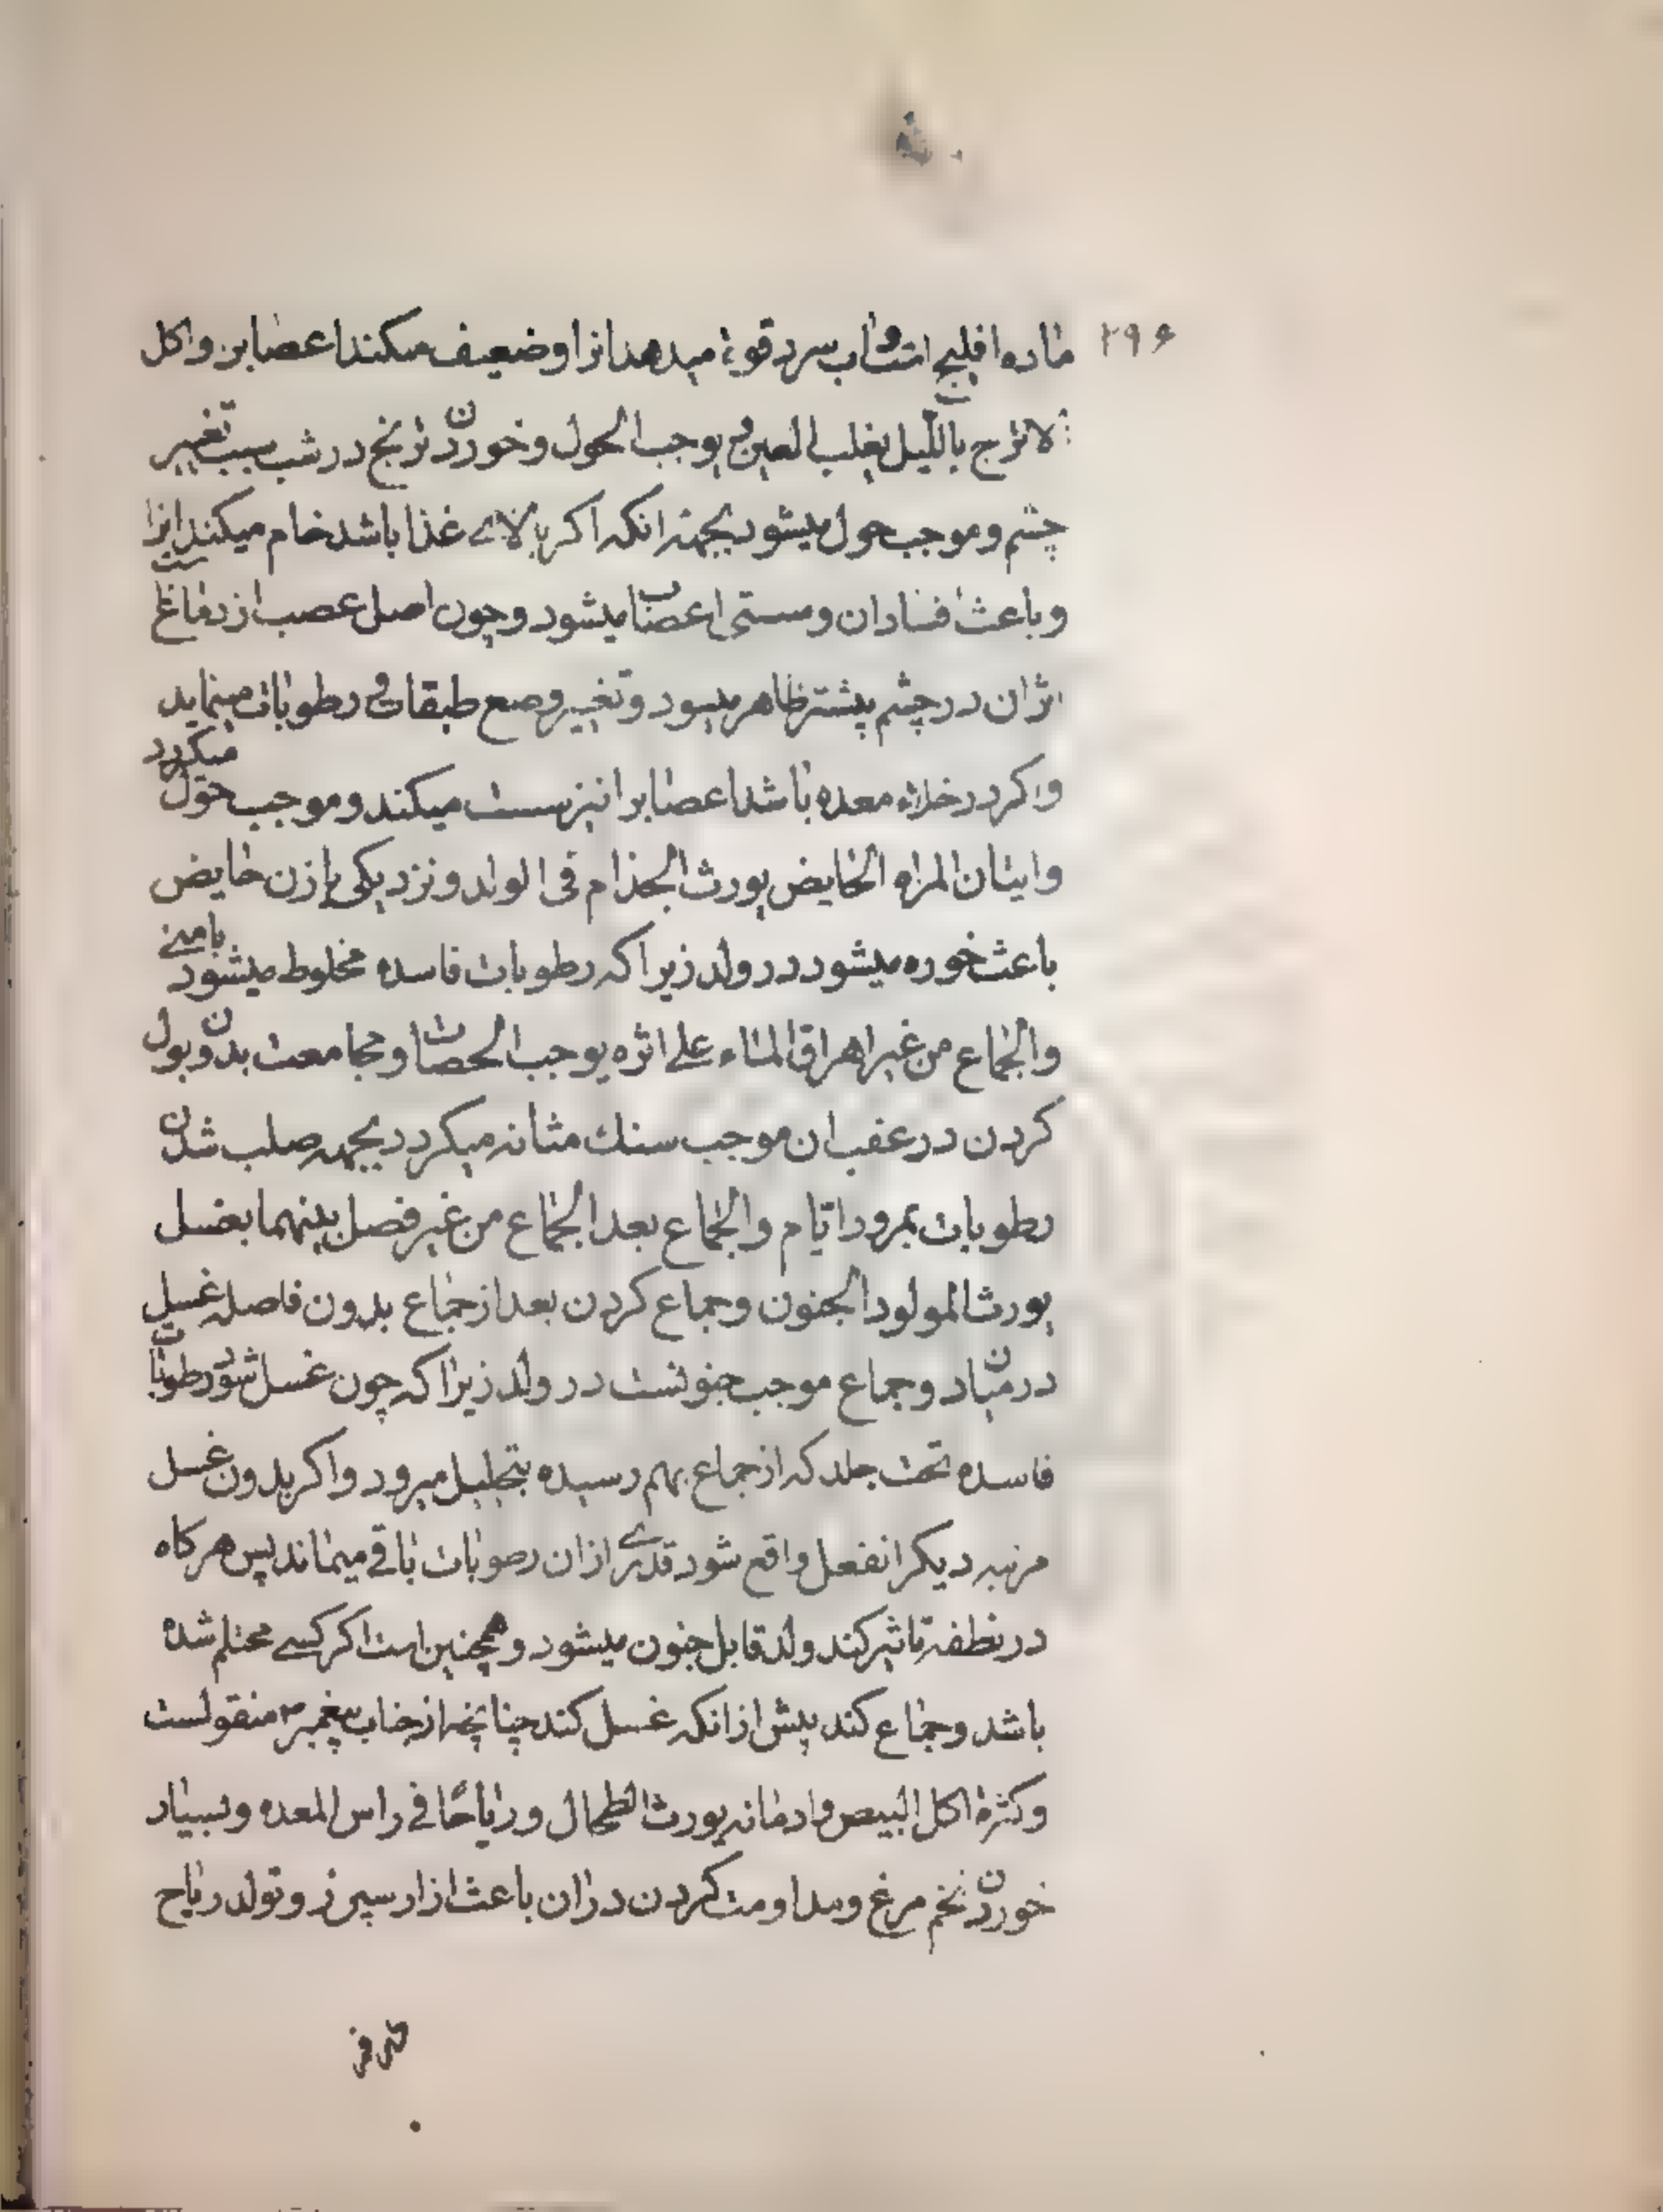 ۲۹۶
ماده افلیج است واب سرد قوة میدهد انرا وضعیف میکند اعصابرا واکل
الاترج باللیل یقلب العین ویوجب الحول وخوردن ترنج در شب سبب تغییر
چشم وموجب حول میشود بجهته انکه اکر بالای غذا باشد خام میکند انرا
وباعث فساد ان وسستی اعصاب میشود وچون اصل عصب از دماغ است
اثر ان در چشم پیشتر ظاهر میشود وتغییر وضع طبقات و رطوبات مینماید
واکر در خلاء معده باشد اعصابرا نیز سست میکند وموجب حول میکردد
واتیان المراه الحایض یورث الجذام فی الولد ونزدیکی با زن حایض
باعث خوره میشود در ولد زیرا که رطوبات فاسده مخلوط میشود بامنی
والجماع من غیر اهراق الماء علی اثره یوجب الحصات ومجامعت بدون بول
کردن در عقب ان موجب سنك مثانه میکردد بجهته صلب شدن
رطوبات بمرور ایام والجماع بعد الجماع من غیر فصل بینهما بغسل
یورث المولود الجنون وجماع کردن بعد از جماع بدون فاصله غسل
در میان دو جماع موجب جنونست در ولد زیرا که چون غسل شود رطوبات
فاسده تحت جلد که از جماع بهم رسیده بتحلیل میرود واکر بدون غسل
مرتبه دیکر انفعل واقع شود قدری از ان رطوبات باقی میماند پس هرکاه
در نطفه تاثیر کند ولد قابل جنون میشود وهمچنین است اکر کسی محتلم شده
باشد وجماع کند پیش از انکه غسل کند چنانچه از جناب پیغمبر ص منقولست
وکثرة اکل البیض وادمانه یورث الطحال وریاحًا فی راس المعده وبسیار
خوردن تخم مرغ ومداومت کردن در ان باعث ازار سپرز وتولد ریاح